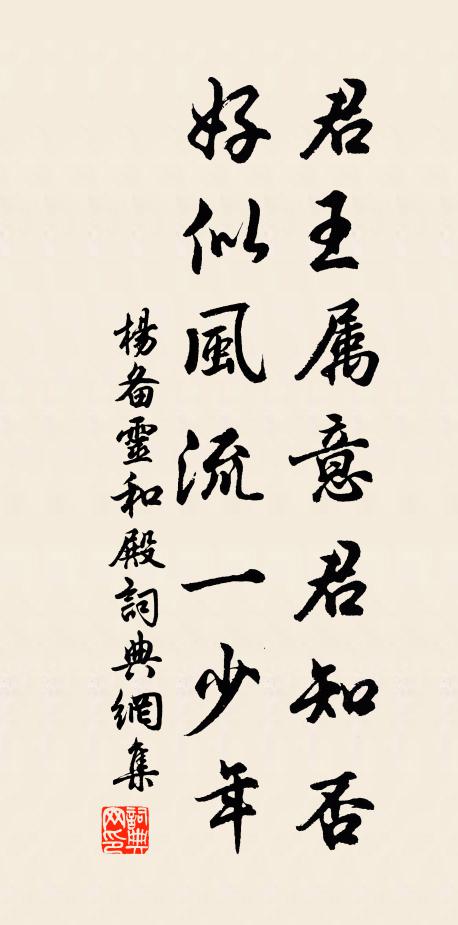 君王属意君知否
好似風流一少年
楊备靈和殿詞典網集
詞典
网印